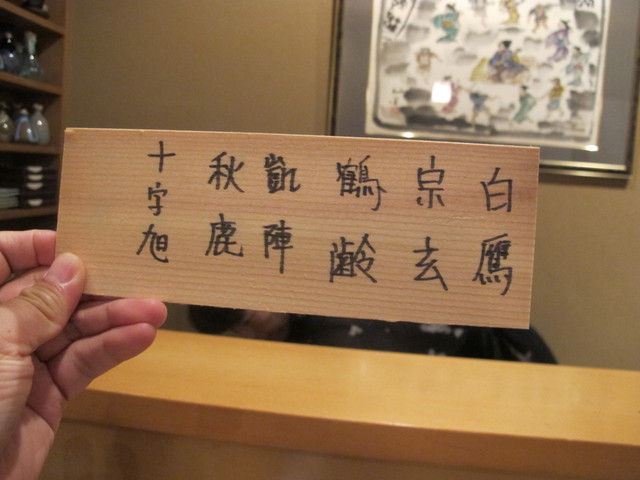 白鷹
宗玄
鶴齢
凱陣
秋鹿
十字旭